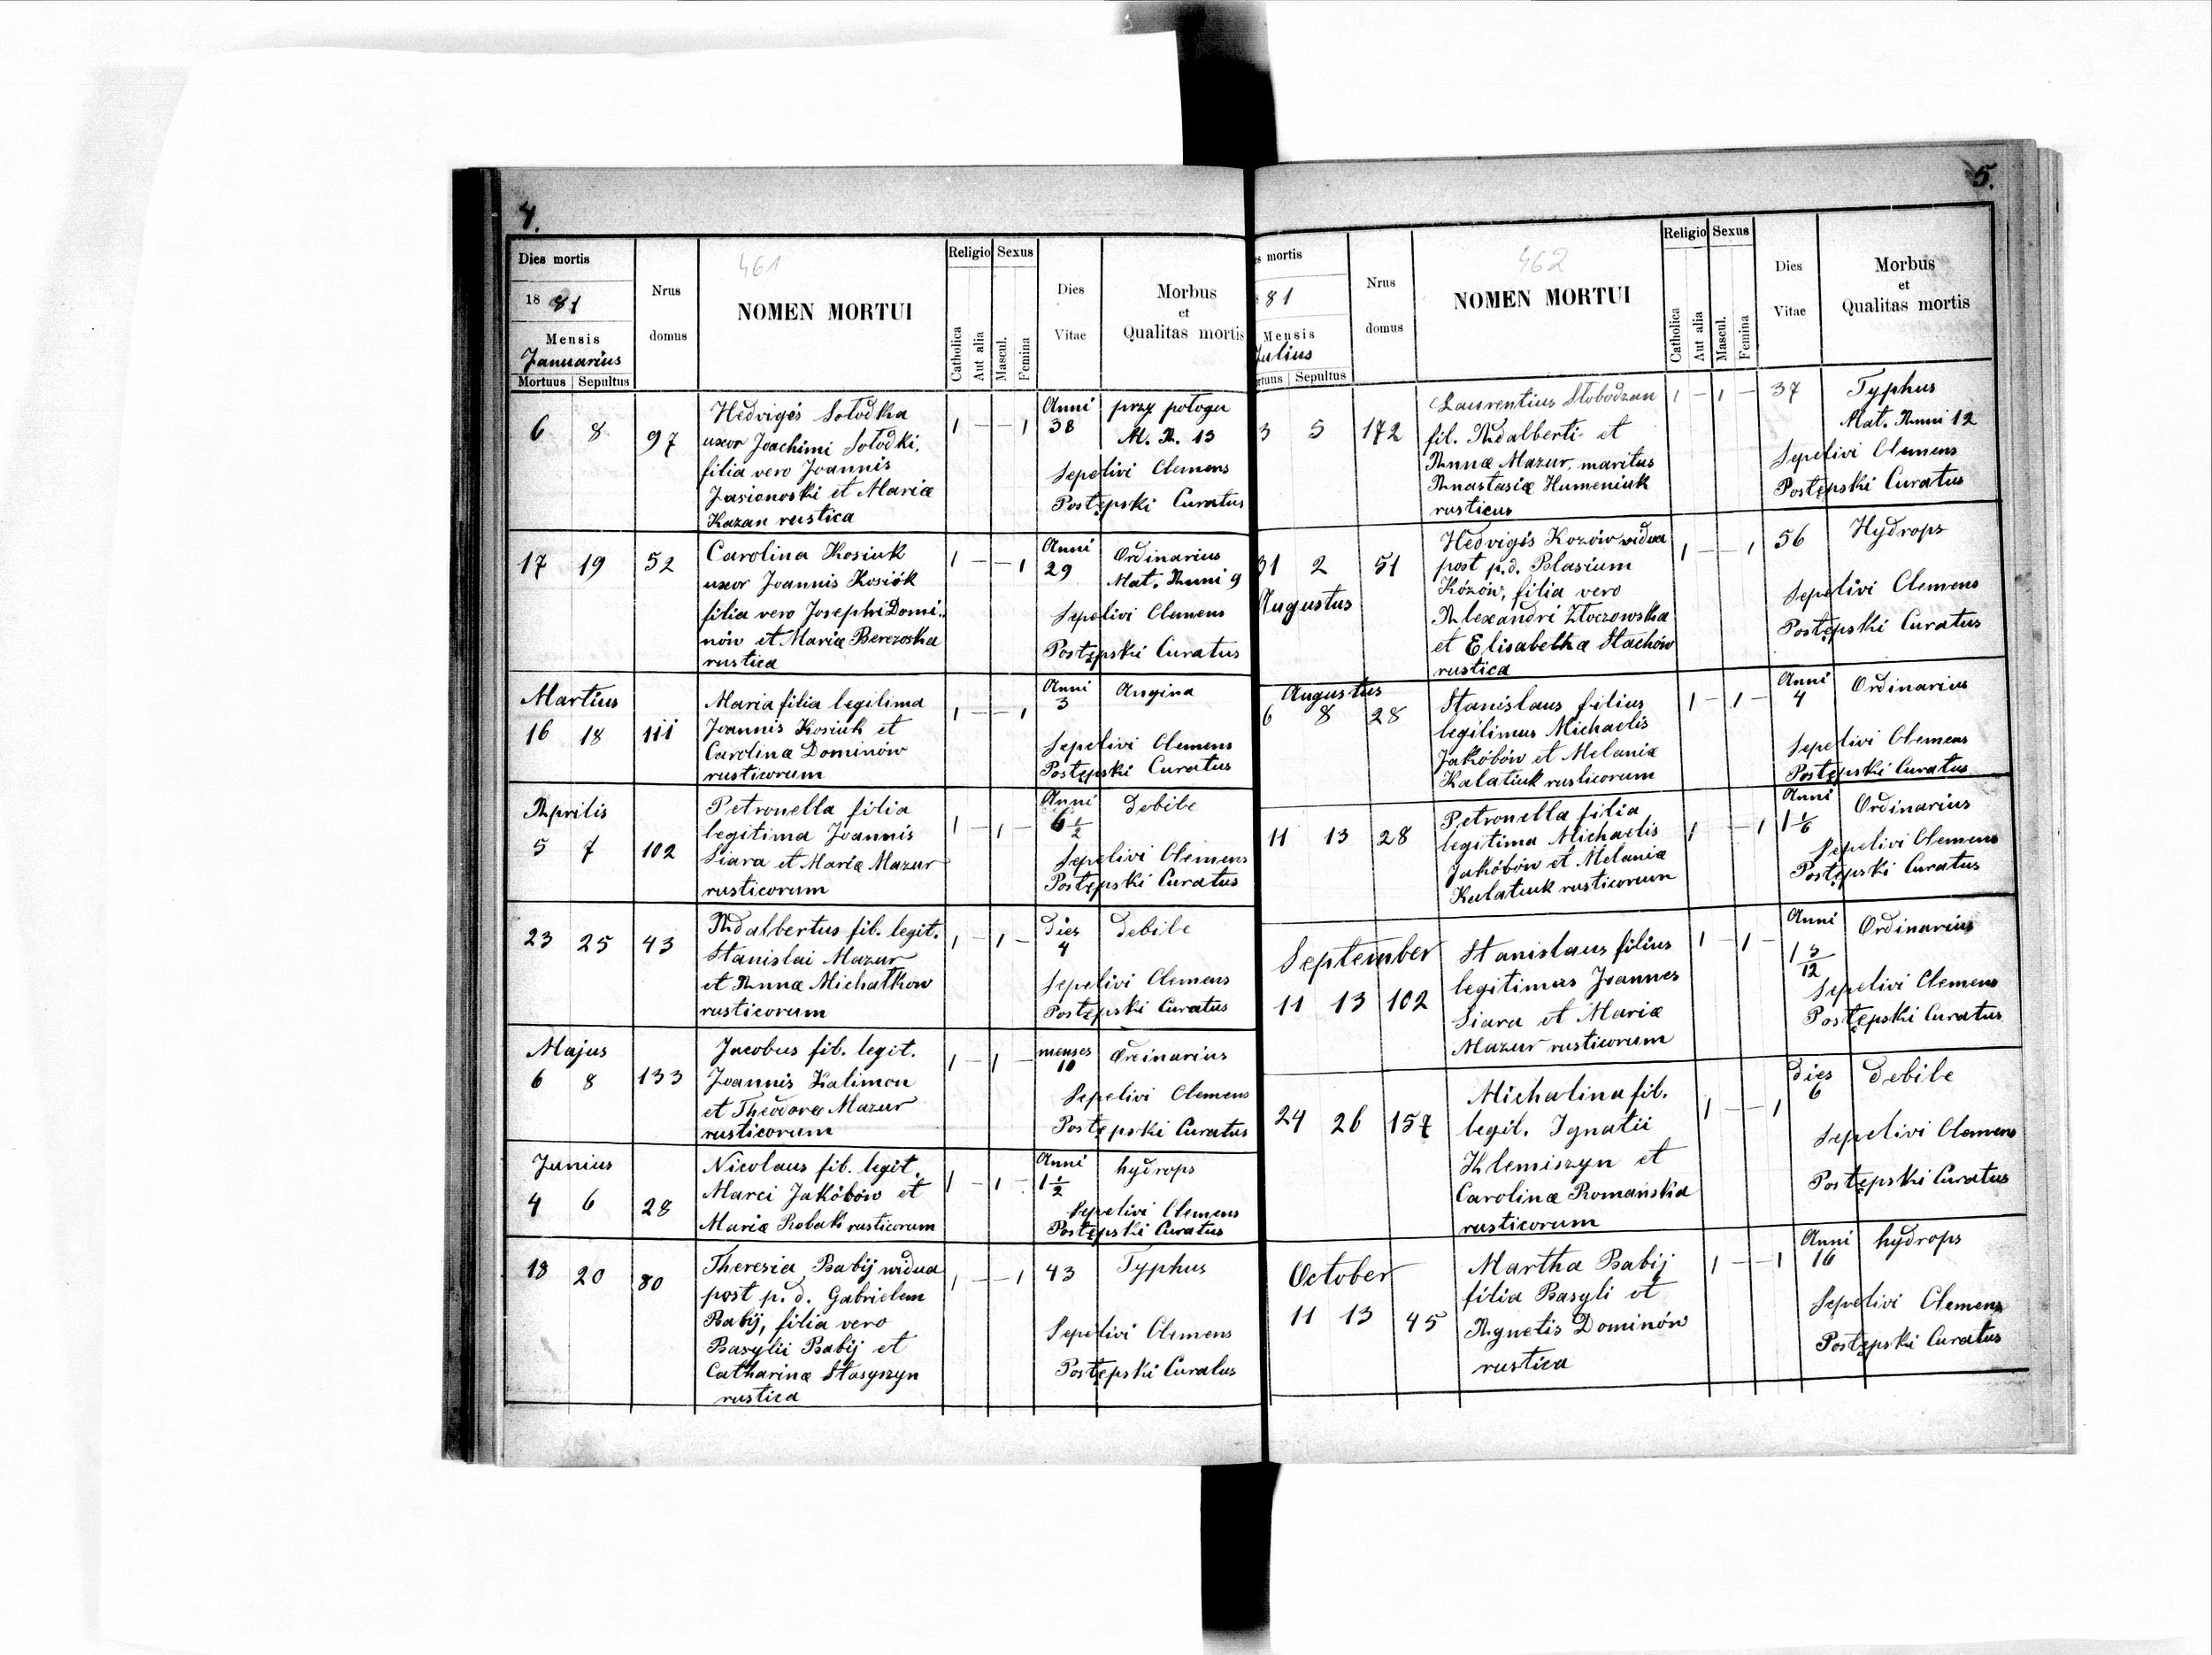 4.
Dies mortis
18 81
Mensis
Januarius
Mortuus | Sepultus
Nrus
domus
461
NOMEN MORTUI
Religio
Catholica
Aut alia
Sexus
Mascul.
Femina
Dies
Vitae
Morbus
et
Qualitas mortis
6 8 97
Hedvigis Sołodka
uxor Joachimi Sołodki,
filia vero Joannis
Jasionoski et Mariæ
Kazan rustica
1 – – 1
Anni
38
przy połogu
M. A. 13
Sepelivi Clemens
Postępski Curatus
17 19 52
Carolina Kosiuk
uxor Joannis Kosiók
filia vero Josephi Domi:
nów et Mariæ Berezoska
rustica
1 – – 1
Anni
29
Ordinarius
Mat. Anni 9
Sepelivi Clemens
Postępski Curatus
Martius
16 18 111
Maria filia legitima
Joannis Kosiuk et
Carolinæ Dominów
rusticorum
1 – – 1
Anni
3
Angina
Sepelivi Clemens
Postępski Curatus
Aprilis
5 7 102
Petronella filia
legitima Joannis
Siara et Mariæ Mazur
rusticorum
1 – 1 –
Anni
6 1/2
Debile
Sepelivi Clemens
Postępski Curatus
23 25 43
Adalbertus fil. legit.
Stanislai Mazur
et Annæ Michałkow
rusticorum
1 – 1 –
Dies
4
Debile
Sepelivi Clemens
Postępski Curatus
Majus
6 8 133
Jacobus fil. legit.
Joannis Kalimon
et Theodoræ Mazur
rusticorum
1 – 1 –
menses
10
Ordinarius
Sepelivi Clemens
Postępski Curatus
Junius
4 6 28
Nicolaus fil. legit.
Marci Jakóbów et
Mariæ Robak rusticorum
1 – 1 –
Anni
1 1/2
hydrops
Sepelivi Clemens
Postępski Curatus
18 20 80
Theresia Babij vidua
post p. d. Gabrielem
Babij, filia vero
Basylii Babij et
Catharinæ Stasyszyn
rustica
1 – – 1
43
Typhus
Sepelivi Clemens
Postępski Curatus
5.
s mortis
81
Mensis
Julius
rtuus | Sepultus
Nrus
domus
462
NOMEN MORTUI
Religio
Catholica
Aut alia
Sexus
Mascul.
Femina
Dies
Vitae
Morbus
et
Qualitas mortis
3 5 172
Laurentius Słobodzan
fil. Adalberti et
Annæ Mazur, maritus
Anastasiæ Humeniuk
rusticus
1 – 1 –
37
Typhus
Mat. Anni 12
Sepelivi Clemens
Postępski Curatus
31 2 51
Augustus
Hedvigis Kozów vidua
post p. d. Blasium
Kózów, filia vero
Alexandri Złoczowska
et Elisabetha Stachów
rustica
1 – – 1
56
Hydrops
Sepelivi Clemens
Postępski Curatus
Augustus
6 8 28
Stanislaus filius
legitimus Michaelis
Jakóbów et Melaniæ
Kalatiuk rusticorum
1 – 1 –
Anni
4
Ordinarius
Sepelivi Clemens
Postępski Curatus
11 13 28
Petronella filia
legitima Michaelis
Jakóbów et Melaniæ
Kulatiuk rusticorum
1 – 1
Anni
1 1/6
Ordinarius
Sepelivi Clemens
Postępski Curatus
September
11 13 102
Stanislaus filius
legitimus Joannes
Siara et Mariæ
Mazur rusticorum
1 – 1 –
Anni
1 3/12
Ordinarius
Sepelivi Clemens
Postępski Curatus
24 26 157
Michalina fil.
legit. Ignatii
Klemiszyn et
Carolinæ Romańska
rusticorum
1 – – 1
Dies
6
Debile
Sepelivi Clemens
Postępski Curatus
October
11 13 45
Martha Babij
filia Basyli et
Agnetis Dominów
rustica
1 – – 1
Anni
16
hydrops
Sepelivi Clemens
Postępski Curatus